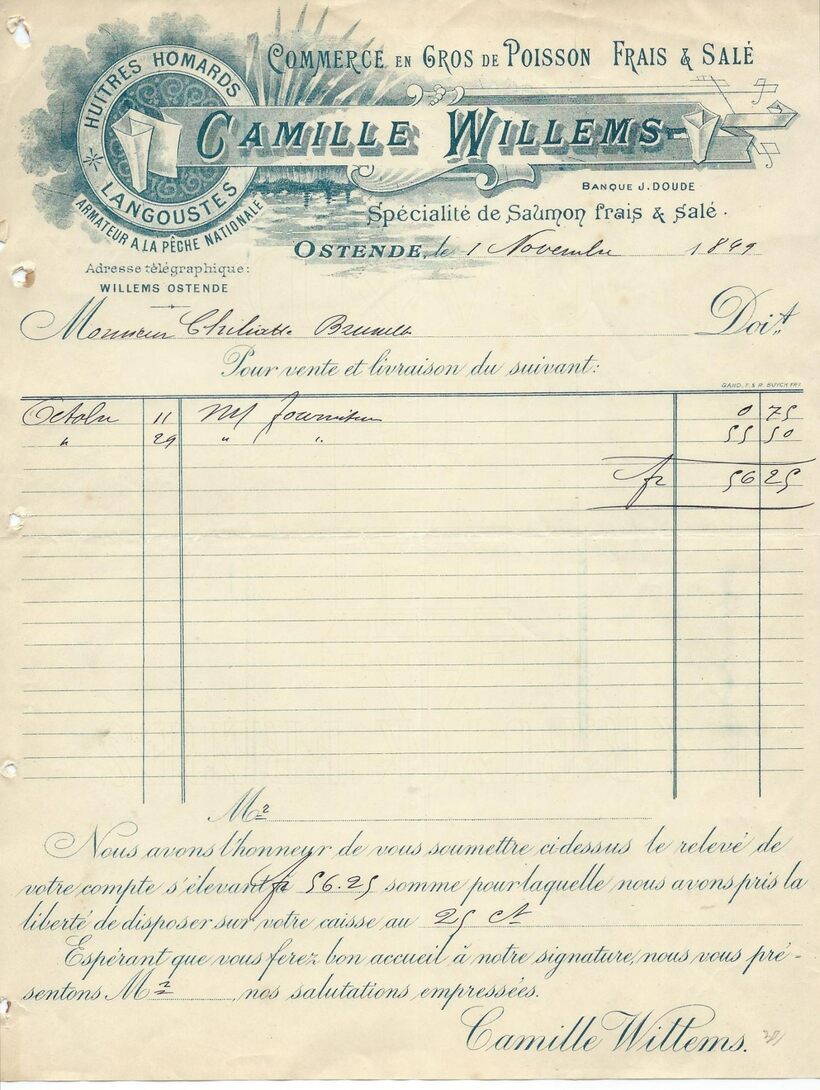 COMMERCE EN GROS DE POISSON FRAIS & SALÉ
HUITRES HOMARDS
LANGOUSTES
CAMILLE WILLEMS
BANQUE J. DOUDE
Spécialité de Saumon frais & salé.
ARMATEUR A LA PÊCHE NATIONALE
OSTENDE, le 1 Novembre 1899
Adresse télégraphique:
WILLEMS OSTENDE
Monsieur Doit
Pour vente et livraison du suivant:
GAND, F. & R. BUYCK FRS
Octobre 11 0 75
" 29 " " 55 50
fr 56 25
Mr
Nous avons l'honneur de vous soumettre ci-dessus le relevé de
votre compte s'élevant à fr 56.25 somme pour laquelle nous avons pris la
liberté de disposer sur votre caisse au 25 ct
Espérant que vous ferez bon accueil à notre signature, nous vous pré-
sentons Mr , nos salutations empressées.
Camille Willems.